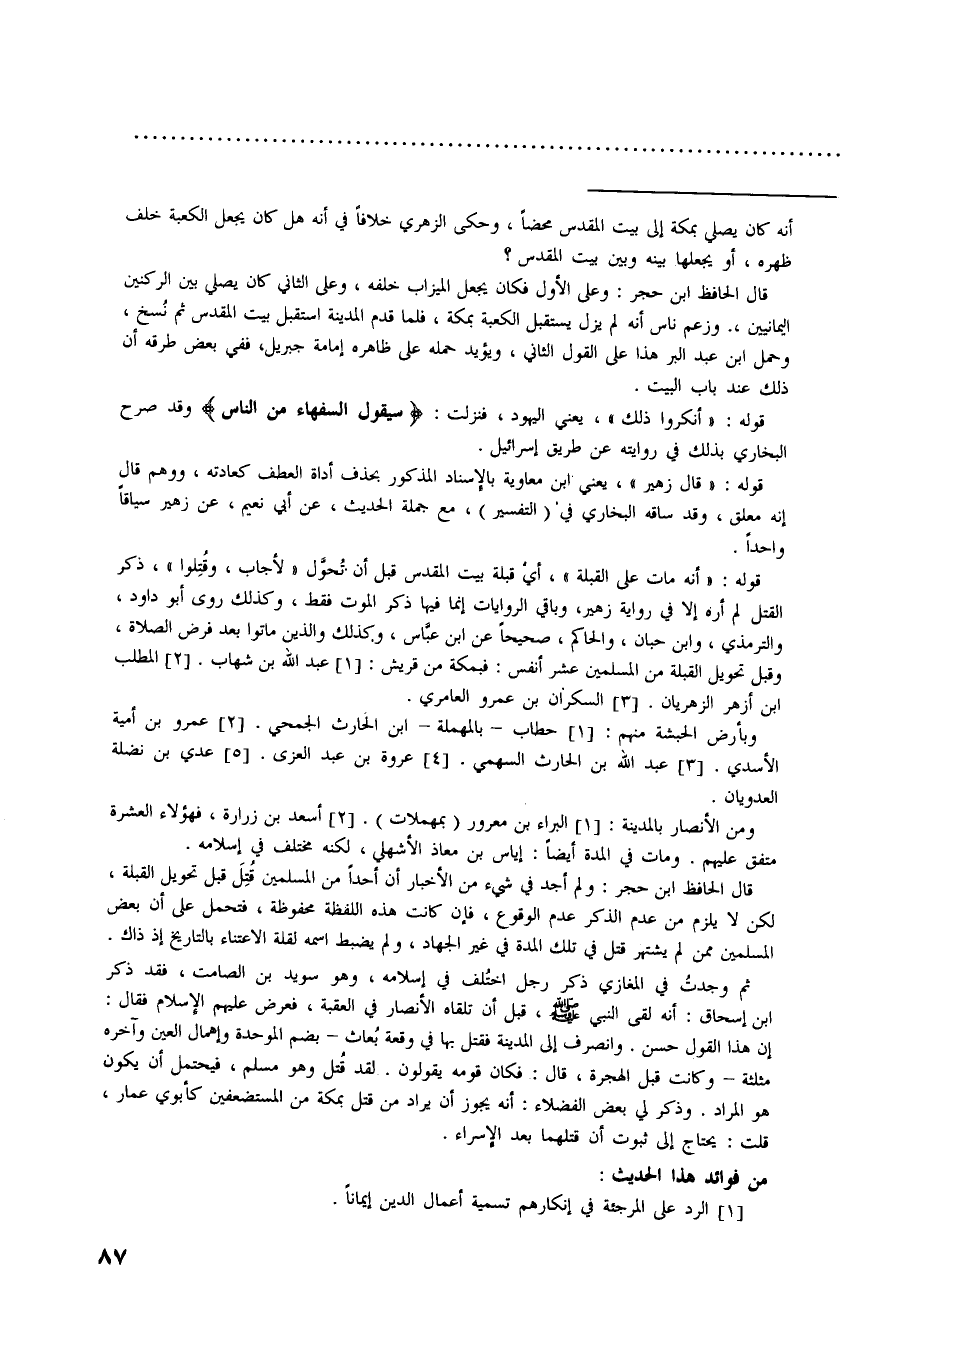 أنه كان يصلي بمكة إلى بيت المقدس محضاً ، وحكى الزهري خلافاً في أنه هل كان يجعل الكعبة خلف
ظهره ، أو يجعلها بينه وبين بيت المقدس ؟
قال الحافظ ابن حجر : وعلى الأول فكان يجعل الميزاب خلفه ، وعلى الثاني كان يصلي بين الركنين
اليمانيين ،. وزعم ناس أنه لم يزل يستقبل الكعبة بمكة ، فلما قدم المدينة استقبل بيت المقدس ثم نُسخ ،
وحمل ابن عبد البر هذا على القول الثاني ، ويؤيد حمله على ظاهره إمامة جبريل، ففي بعض طرقه أن
ذلك عند باب البيت .
قوله : « أنكروا ذلك » ، يعني اليهود ، فنزلت : ﴿ سيقول السفهاء من الناس ﴾ وقد صرح
البخاري بذلك في روايته عن طريق إسرائيل .
قوله : « قال زهير » ، يعني ابن معاوية بالإسناد المذكور بحذف أداة العطف كعادته ، ووهم قال
إنه معلق ، وقد ساقه البخاري في ( التفسير ) ، مع جملة الحديث ، عن أبي نعيم ، عن زهير سياقاً
واحداً .
قوله : « أنه مات على القبلة » ، أيْ قبلة بيت المقدس قبل أن تُحوَّل « لأجاب ، وقُتِلوا » ، ذكر
القتل لم أره إلا في رواية زهير، وباقي الروايات إنما فيها ذكر الموت فقط ، وكذلك روى أبو داود ،
والترمذي ، وابن حبان ، والحاكم ، صحيحاً عن ابن عبَّاس ، وكذلك والذين ماتوا بعد فرض الصلاة ،
وقبل تحويل القبلة من المسلمين عشر أنفس : فبمكة من قريش : [١] عبد الله بن شهاب . [٢] المطلب
ابن أزهر الزهريان . [٣] السكران بن عمرو العامري .
وبأرض الحبشة منهم : [١] حطاب – بالمهملة – ابن الحارث الجمحي . [٢] عمرو بن أمية
الأسدي . [٣] عبد الله بن الحارث السهمي . [٤] عروة بن عبد العزى . [٥] عدي بن نضلة
العدويان .
ومن الأنصار بالمدينة : [١] البراء بن معرور ( بمهملات ) . [٢] أسعد بن زرارة ، فهؤلاء العشرة
متفق عليهم . ومات في المدة أيضاً : إياس بن معاذ الأشهلي ، لكنه مختلف في إسلامه .
قال الحافظ ابن حجر : ولم أجد في شيء من الأخبار أن أحداً من المسلمين قُتِلَ قبل تحويل القبلة ،
لكن لا يلزم من عدم الذكر عدم الوقوع ، فإن كانت هذه اللفظة محفوظة ، فتحمل على أن بعض
المسلمين ممن لم يشتهر قتل في تلك المدة في غير الجهاد ، ولم يضبط اسمه لقلة الاعتناء بالتاريخ إذ ذاك .
ثم وجدتُ في المغازي ذكر رجل اختُلف في إسلامه ، وهو سويد بن الصامت ، فقد ذكر
ابن إسحاق : أنه لقى النبي ﷺ ، قبل أن تلقاه الأنصار في العقبة ، فعرض عليهم الإسلام فقال :
إن هذا القول حسن . وانصرف إلى المدينة فقتل بها في وقعة بُعاث – بضم الموحدة وإهمال العين وآخره
مثلثة – وكانت قبل الهجرة ، قال : فكان قومه يقولون . لقد قُتل وهو مسلم ، فيحتمل أن يكون
هو المراد . وذكر لي بعض الفضلاء : أنه يجوز أن يراد من قتل بمكة من المستضعفين كأبوي عمار ،
قلت : يحتاج إلى ثبوت أن قتلهما بعد الإسراء .
من فوائد هذا الحديث :
[١] الرد على المرجئة في إنكارهم تسمية أعمال الدين إيماناً .
٨٧